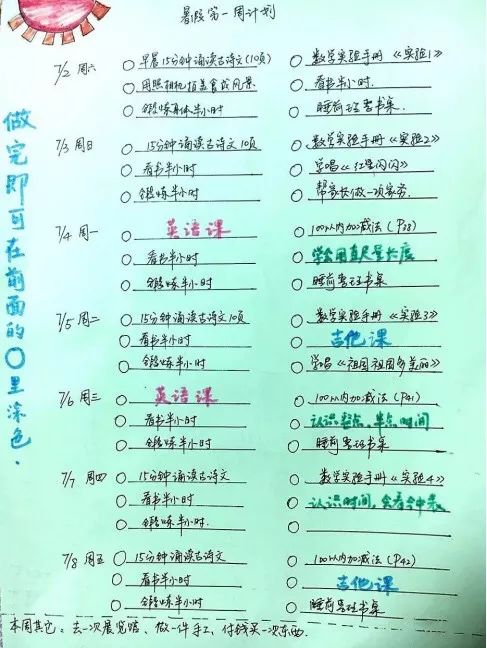 暑假第一周计划
7/2 周六
早晨15分钟诵读古诗文(10页)
数学实验手册《实验1》
用照相机拍美食或风景
看书半小时.
锻炼身体半小时
睡前整书桌.
7/3 周日
15分钟诵读古诗文10页
数学实验手册《实验2》
看书半小时
学唱《红星闪闪》
锻炼半小时
帮家长做一项家务.
7/4 周一
英语课
100以内加减法(P38)
看书半小时
学会用直尺量长度
锻炼半小时
睡前整理书桌
7/5 周二
15分钟诵读古诗文10页
数学实验手册《实验3》
看书半小时
吉他课
锻炼半小时
学唱《祖国祖国多美丽》
7/6 周三
英语课
100以内加减法(P41)
看书半小时
认识整点、半点时间
锻炼半小时
睡前整理书桌
7/7 周四
15分钟诵读古诗文
数学实验手册《实验4》
看书半小时
认识时间,会看钟表.
锻炼半小时.
7/8 周五
15分钟诵读古诗文
100以内加减法(P42)
看书半小时
吉他课
锻炼半小时
睡前整理书桌
本周其它:去一次展览馆、做一件手工、付钱买一次东西.
做完即可在前面的○里涂色.